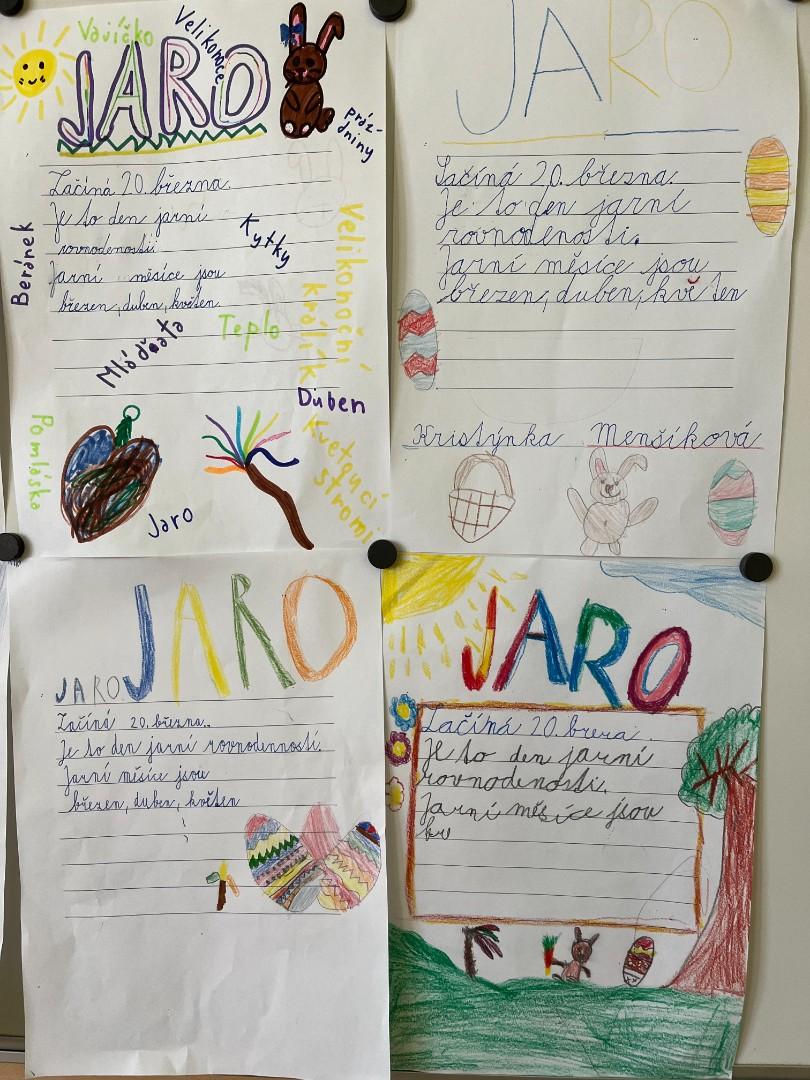 Vajíčko
Velikonoce
JARO
Práz-
dniny
Začíná 20. března.
Je to den jarní
rovnodenosti
Jarní měsíce jsou
březen, duben, květen
Beránek
Kytky
Velikonoční
králík
Teplo
Mláďata
Duben
Kvetoucí
stromi
Pomláska
Jaro
JARO
Začíná 20. března.
Je to den jarní
rovnodenosti.
Jarní měsíce jsou
březen, duben, květen
Kristýnka Menšíková
JARO
JARO
Začíná 20. března.
Je to den jarní rovnodennosti.
Jarní měsíce jsou
březen, duben, květen
JARO
Začíná 20. březa.
Je to den jarní
rovnodenosti.
Jarní měsíce jsou